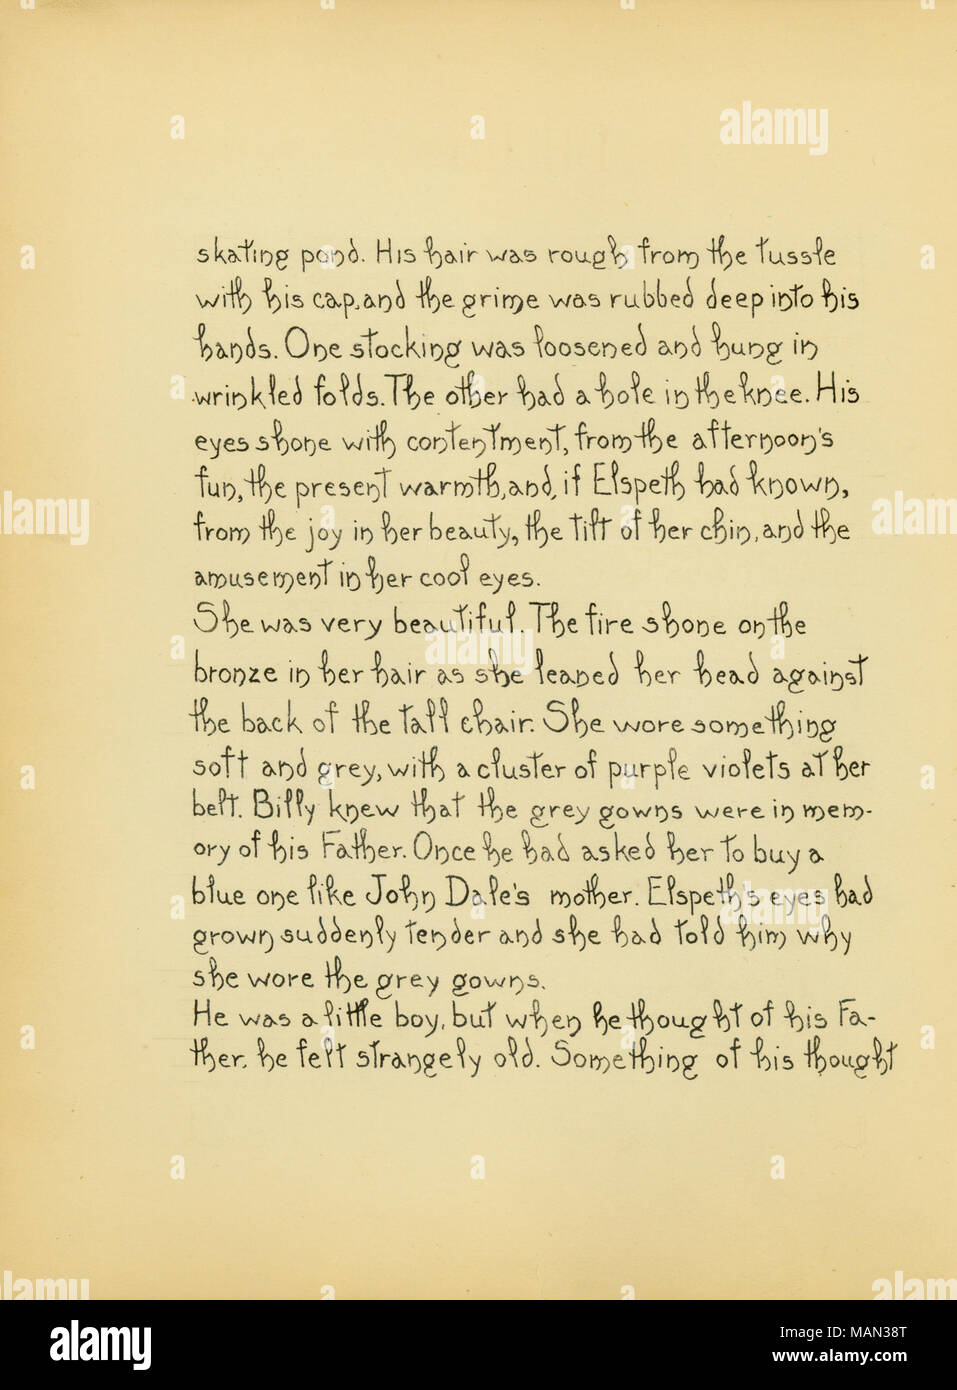 skating pond. His hair was rough from the tussle
with his cap, and the grime was rubbed deep into his
hands. One stocking was loosened and hung in
wrinkled folds. The other had a hole in the knee. His
eyes shone with contentment, from the afternoon's
fun, the present warmth, and, if Elspeth had known,
from the joy in her beauty, the tilt of her chin, and the
amusement in her cool eyes.
She was very beautiful. The fire shone on the
bronze in her hair as she leaned her head against
the back of the tall chair. She wore something
soft and grey, with a cluster of purple violets at her
belt. Billy knew that the grey gowns were in mem-
ory of his Father. Once he had asked her to buy a
blue one like John Dale's mother. Elspeth's eyes had
grown suddenly tender and she had told him why
she wore the grey gowns.
He was a little boy, but when he thought of his Fa-
ther, he felt strangely old. Something of his thought
a alamy
alamy
Image ID: MAN38T
www.alamy.com